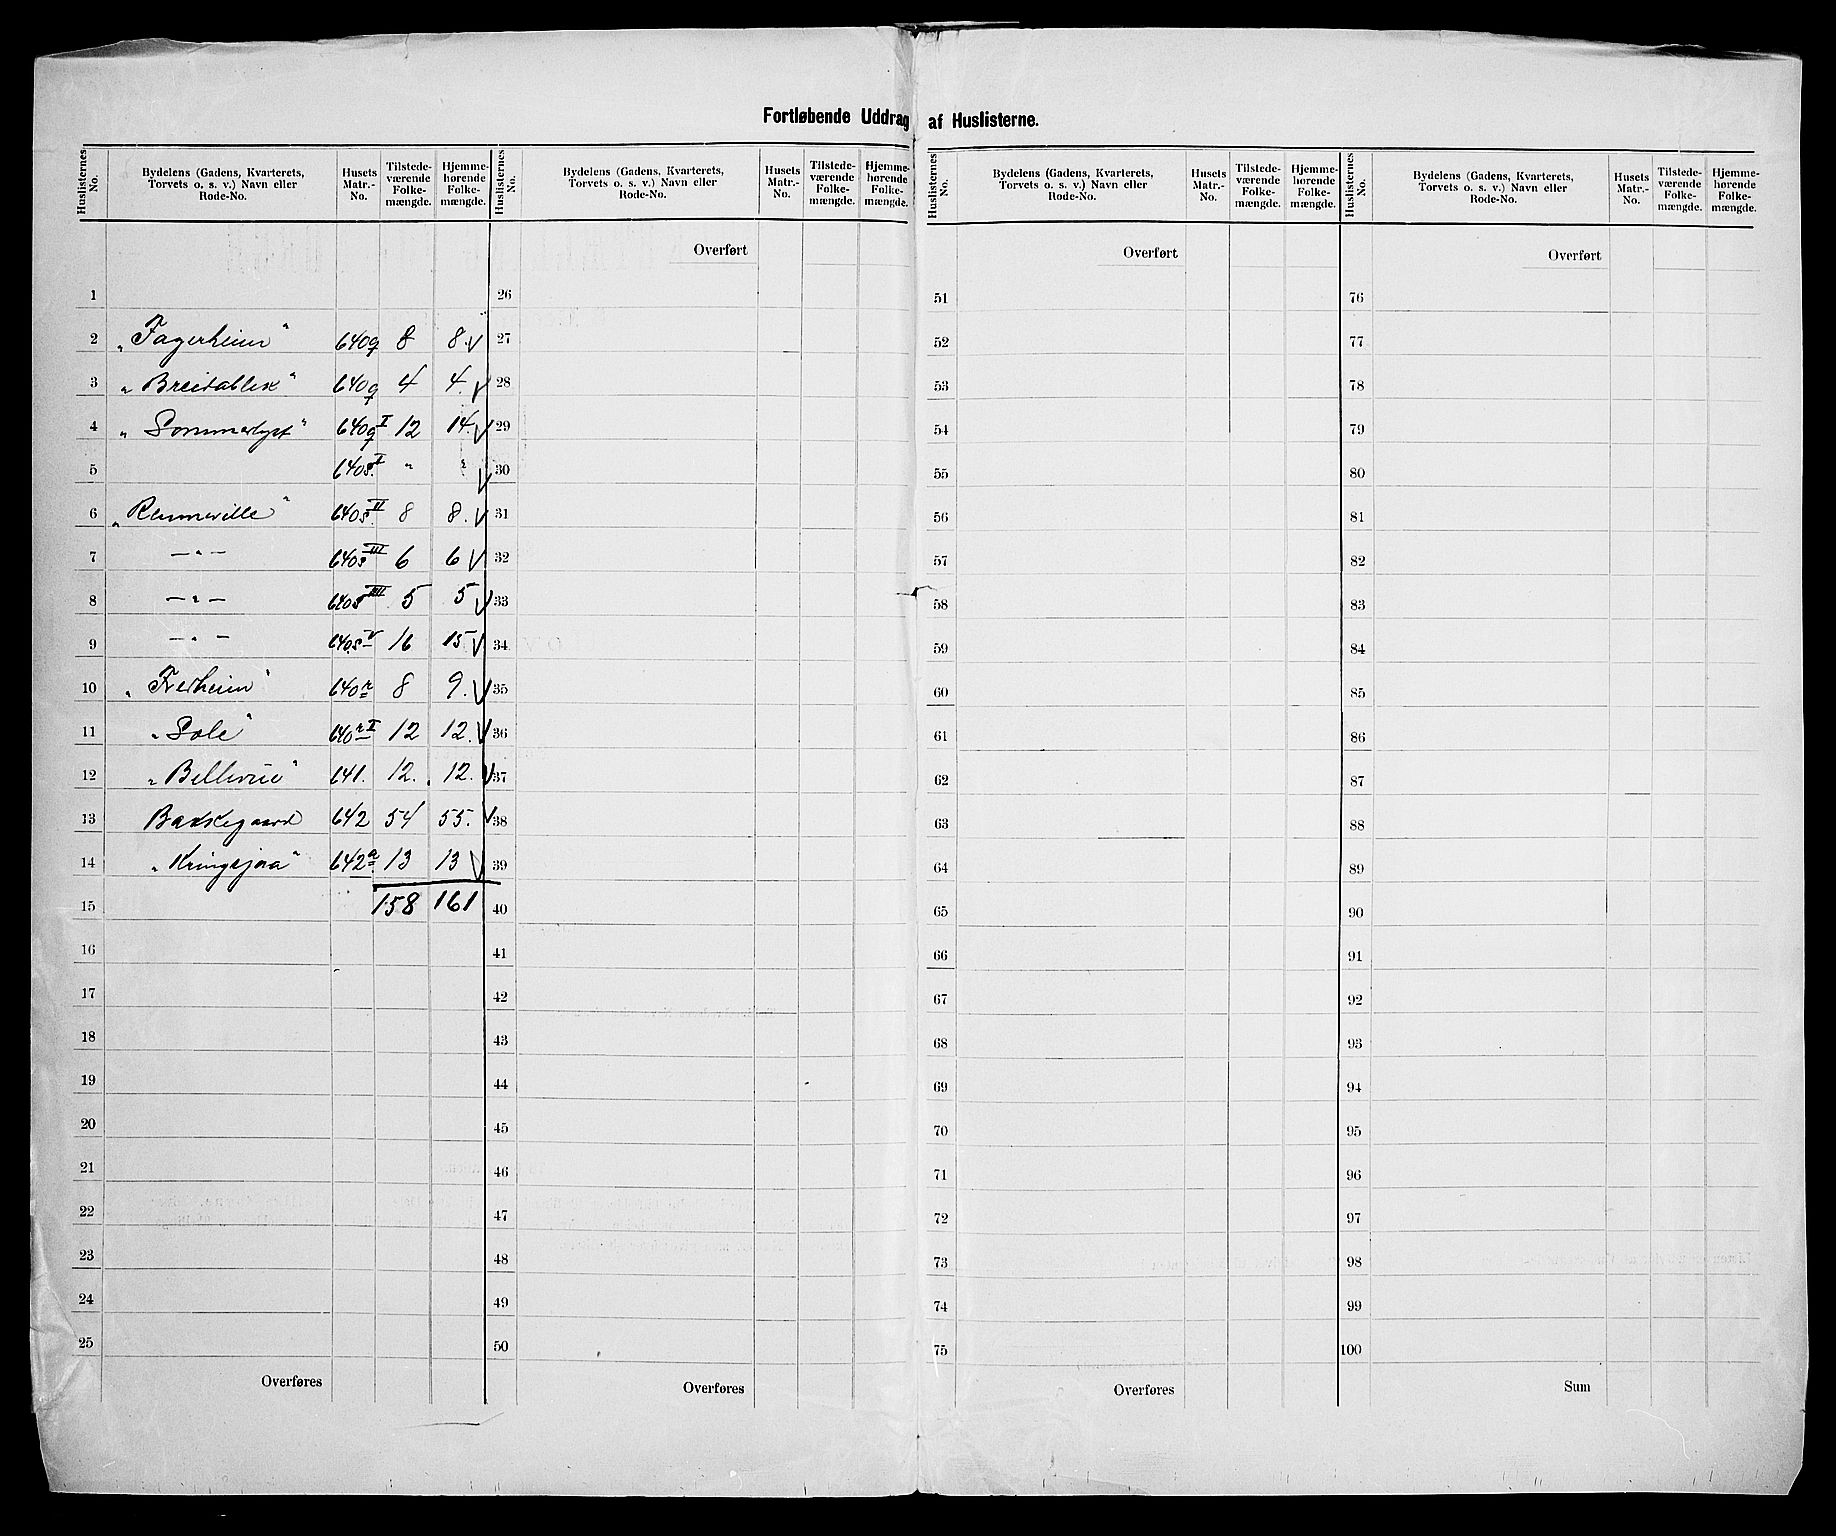 Fortløbende Uddrag af Huslisterne.
Huslisternes No. | Bydelens (Gadens, Kvarterets, Torvets o. s. v.) Navn eller Rode-No. | Husets Matr.-No. | Tilstedeværende Folkemængde. | Hjemmehørende Folkemængde.
1
2 „Fagerheim" 640q 8 8. √
3 „Breidablik" 640q 4 4. √
4 „Sommerlyst" 640q I 12 14. √
5 640s. I " " √
6 „Renneville" 640s II 8 8. √
7 — " — 640s III 6 6 √
8 — " — 640s IIII 5 5 √
9 — " — 640s V 16 15 √
10 „ 640r 8 9. √
11 „Sole" 640r I 12 12. √
12 „Bellevue" 641. 12. 12. √
13 Bakkegaard 642 54 55. √
14 „Kringsjaa" 642a 13 13 √
15 158 161
16
17
18
19
20
21
22
23
24
25
Overføres
Huslisternes No. | Bydelens (Gadens, Kvarterets, Torvets o. s. v.) Navn eller Rode-No. | Husets Matr.-No. | Tilstedeværende Folkemængde. | Hjemmehørende Folkemængde.
Overført
26
27
28
29
30
31
32
33
34
35
36
37
38
39
40
41
42
43
44
45
46
47
48
49
50
Overføres
Huslisternes No. | Bydelens (Gadens, Kvarterets, Torvets o. s. v.) Navn eller Rode-No. | Husets Matr.-No. | Tilstedeværende Folkemængde. | Hjemmehørende Folkemængde.
Overført
51
52
53
54
55
56
57
58
59
60
61
62
63
64
65
66
67
68
69
70
71
72
73
74
75
Overføres
Huslisternes No. | Bydelens (Gadens, Kvarterets, Torvets o. s. v.) Navn eller Rode-No. | Husets Matr.-No. | Tilstedeværende Folkemængde. | Hjemmehørende Folkemængde.
Overført
76
77
78
79
80
81
82
83
84
85
86
87
88
89
90
91
92
93
94
95
96
97
98
99
100
Sum